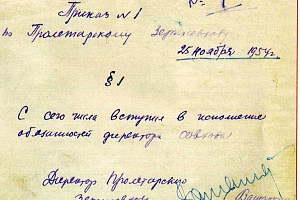 № 1
Приказ №1
по Пролетарскому Зерносовхозу
25 ноября 1954г.
§1
С сего числа вступил в исполнение
обязанностей директора совхоза
Директор Пролетарского
Зерносовхоза